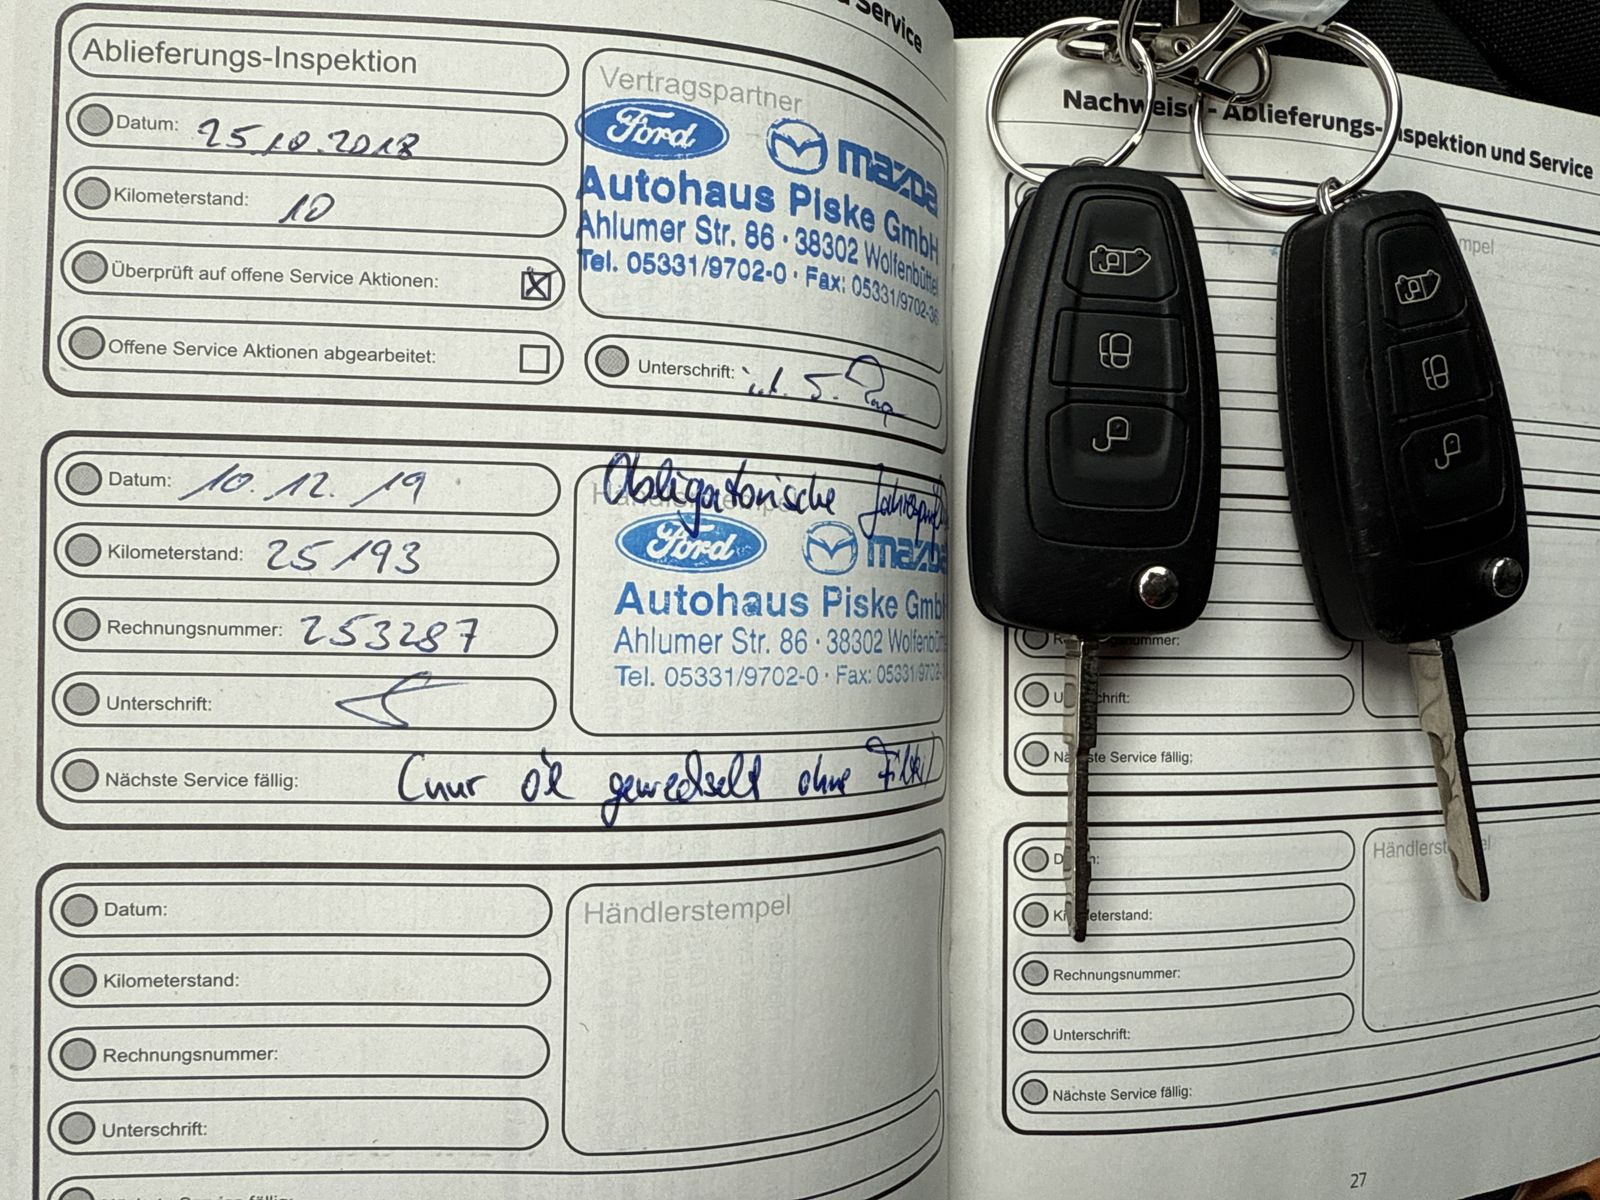 Service
Ablieferungs-Inspektion
Datum: 25.10.2018
Kilometerstand: 10
Überprüft auf offene Service Aktionen:
Offene Service Aktionen abgearbeitet:
Vertragspartner
Ford mazda
Autohaus Piske GmbH
Ahlumer Str. 86 · 38302 Wolfenbüttel
Tel. 05331/9702-0 · Fax: 05331/9702-36
Unterschrift:
Datum: 10.12.19
Kilometerstand: 25193
Rechnungsnummer: 253287
Unterschrift:
Obligatorische
Ford mazda
Autohaus Piske GmbH
Ahlumer Str. 86 · 38302 Wolfenbütt
Tel. 05331/9702-0 · Fax: 05331/9702-
Nächste Service fällig: (nur öl gewechselt ohne Filter)
Datum:
Kilometerstand:
Rechnungsnummer:
Unterschrift:
Händlerstempel
Nächste Service fällig:
Nachweise - Ablieferungs-Inspektion und Service
Nächste Service fällig:
Kilometerstand:
Händlerstempel
Rechnungsnummer:
Unterschrift:
Nächste Service fällig:
27